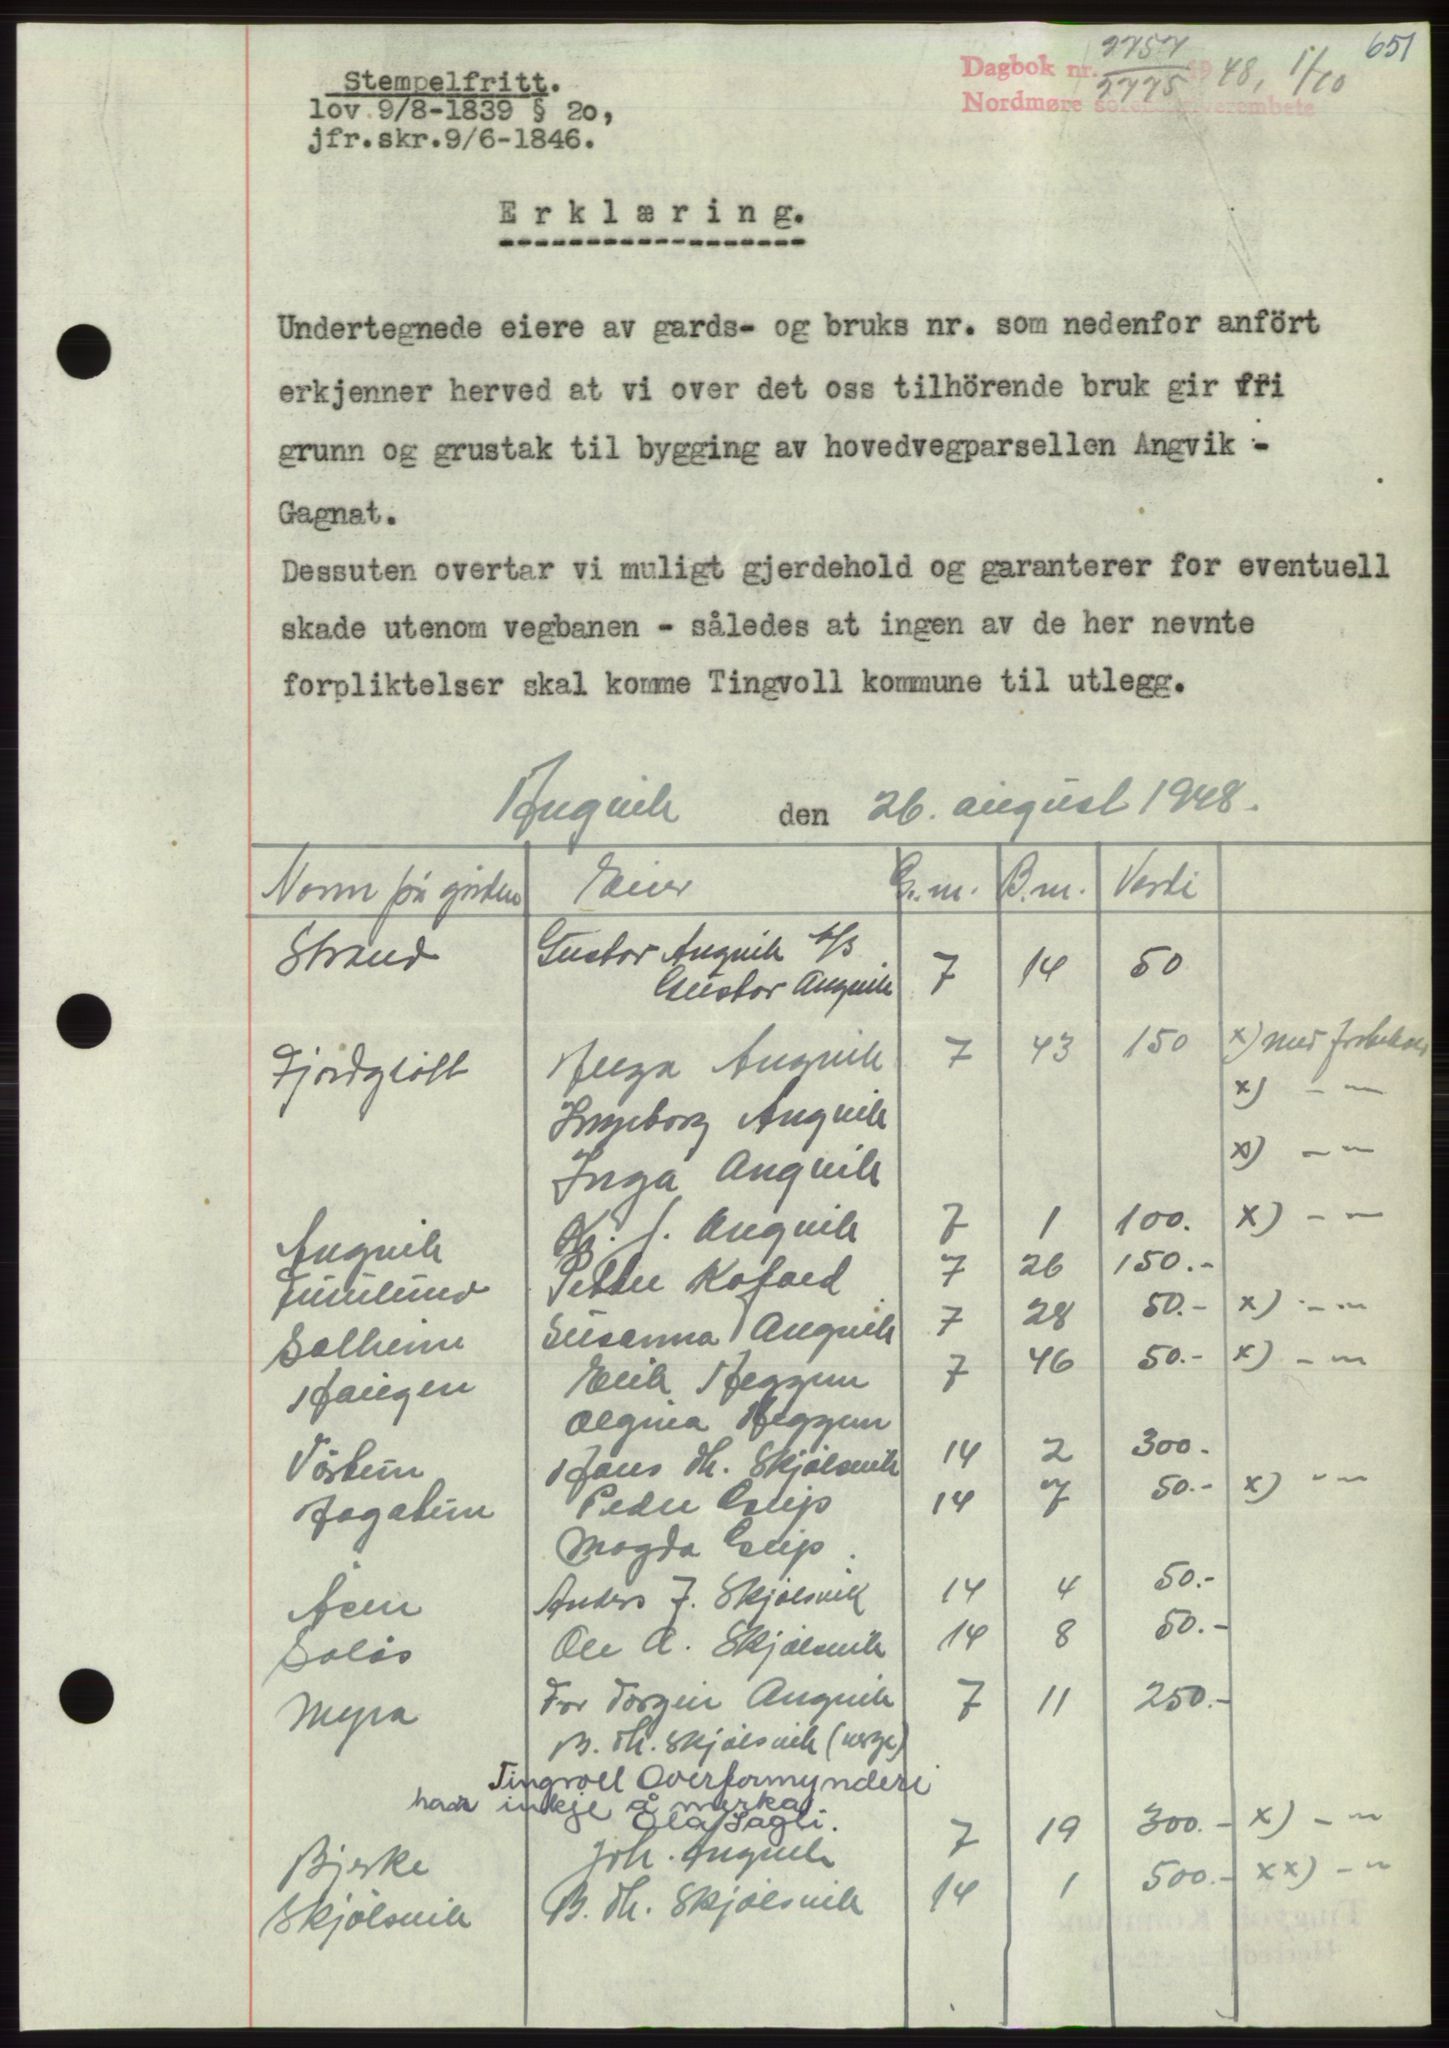 651
Dagbok nr. 2757 1948, 1/10
2775
Nordmøre sorenskriverembete
Stempelfritt.
lov 9/8-1839 § 20,
jfr.skr.9/6-1846.
Erklæring.
Undertegnede eiere av gards- og bruks nr. som nedenfor anført
erkjenner herved at vi over det oss tilhörende bruk gir fri
grunn og grustak til bygging av hovedvegparsellen Angvik -
Gagnat.
Dessuten overtar vi muligt gjerdehold og garanterer for eventuell
skade utenom vegbanen - således at ingen av de her nevnte
forpliktelser skal komme Tingvoll kommune til utlegg.
Angvik den 26. august 1948.
Navn på gården Eier G.nr. B.nr. Verdi
Strand Gustav Angvik 7 14 50
Gustav Angvik
Fjordgløtt Angvik 7 43 150 x) med forbehold
Ingeborg Angvik x) - "
Inga Angvik x) - "
Angvik K. J. Angvik 7 1 100. x) - "
Furulund Petter Kofoed 7 26 150.-
Solheim Susanna Angvik 7 28 50.- x) - "
Haugen Erik Heggem 7 46 50.- x) - "
Heggem
Hans Th. Skjølsvik 14 2 300.-
Hagatun Peder 14 7 50.- x) - "
Magda
Åsen Anders J. Skjølsvik 14 4 50.-
Solås Ole A. Skjølsvik 14 8 50.-
Myra For Torgeir Angvik 7 11 250.-
B. Th. Skjølsvik (verge)
Tingvoll Overformynderi
har inkje å merka
Ola Fagli.
Bjerke Joh. Angvik 7 19 300.- x) - "
Skjølsvik B. Th. Skjølsvik 14 1 500.- xx) - "